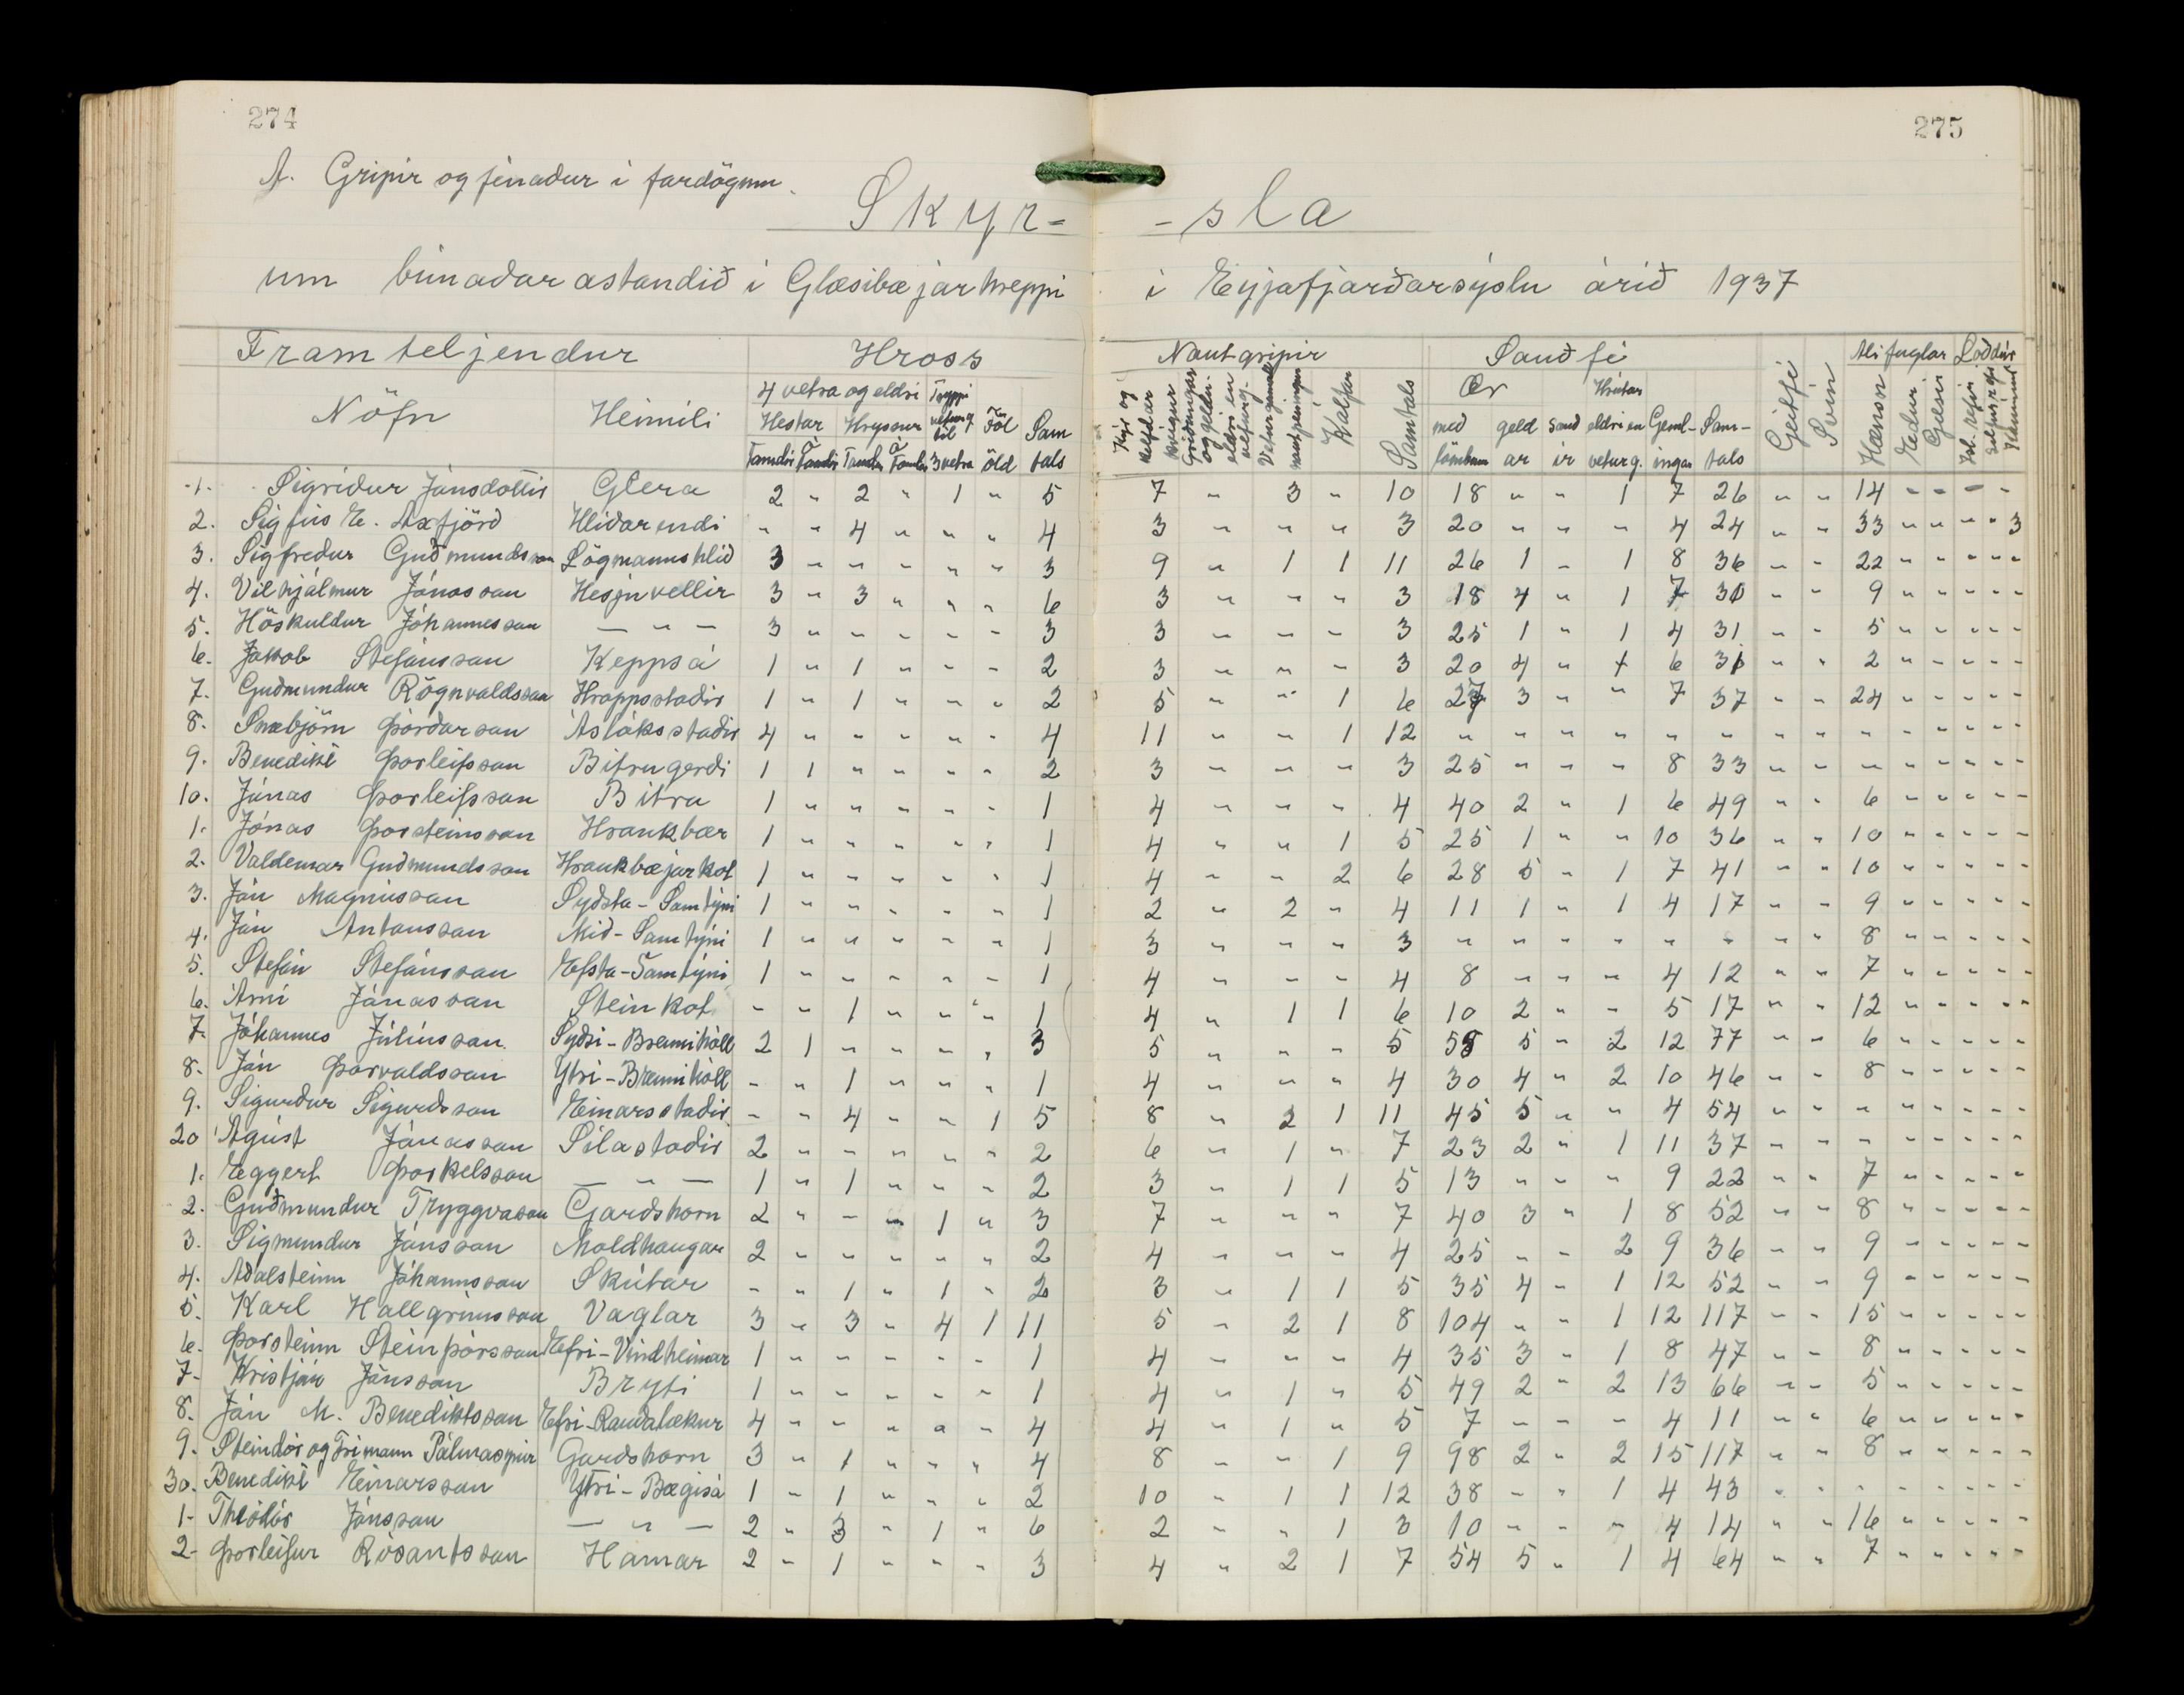 274
275
A. Gripir og fénaður í fardögum.
Skyr- -sla
um búnaðarástandið í Glæsibæjarhreppi í Eyjafjarðarsýslu árið 1937
Framteljendur Hross Nautgripir Sauðfé Geitfé Svín Alifuglar Loðdýr
Nöfn Heimili 4 vetra og eldri Tryppi veturg. til 3 vetra Föl öld Sam tals
Hestar Hryssur
Tamdir Ótamdir Tamdar Ótamdar
Kýr og kelfdar kvígur Griðungar og geldn. eldri en veturg. Veturgamall nautpeningur Kálfar Samtals
Ær með lömbum geld ar Sauð ir Hrútar eldri en veturg. Geml- ingar Sam- tals
Hænsn Endur Gæsir Ísl. refir
1. Sigríður Jónsdóttir Glerá 2 " 2 " 1 " 5 7 " 3 " 10 18 " " 1 7 26 " " 14 - - - -
2. Sigfús E. Axfjörð Hlíðarendi " " 4 " " " 4 3 " " " 3 20 " " " 4 24 " " 33 " " " " 3
3. Sigfreður Guðmundsson Lögmannshlíð 3 " " " " " 3 9 " 1 1 11 26 1 " 1 8 36 " " 22 " " " " "
4. Vilhjálmur Jónasson Hesjuvellir 3 " 3 " " " 6 3 " " " 3 18 4 " 1 7 30 " " 9 " " " " "
5. Höskuldur Jóhannesson — " — 3 " " " " " 3 3 " " " 3 25 1 " 1 4 31 " " 5 " " " " "
6. Jakob Stefánsson Keppsá 1 " 1 " " " 2 3 " " " 3 20 4 " 1 6 31 " " 2 " " " " "
7. Guðmundur Rögnvaldsson Hrappsstaðir 1 " 1 " " " 2 5 " " 1 6 27 3 " " 7 37 " " 24 " " " " "
8. Snæbjörn Þórðarson Ásláksstaðir 4 " " " " " 4 11 " " 1 12 " " " " " " " " " " " " " "
9. Benedikt Þorleifsson Bitrugerði 1 1 " " " " 2 3 " " " 3 25 " " " 8 33 " " " " " " " "
10. Jónas Þorleifsson Bitra 1 " " " " " 1 4 " " " 4 40 2 " 1 6 49 " " 6 " " " " "
1. Jónas Þorsteinsson Hraukbær 1 " " " " " 1 4 " " 1 5 25 1 " " 10 36 " " 10 " " " " "
2. Valdemar Guðmundsson Hraukbæjarkot 1 " " " " " 1 4 " " 2 6 28 5 " 1 7 41 " " 10 " " " " "
3. Jón Magnússon Syðsta-Samtýni 1 " " " " " 1 2 " 2 " 4 11 1 " 1 4 17 " " 9 " " " " "
4. Jón Antonsson Mið-Samtýni 1 " " " " " 1 3 " " " 3 " " " " " " " " 8 " " " " "
5. Stefán Stefánsson Efsta-Samtýni 1 " " " " " 1 4 " " " 4 8 " " " 4 12 " " 7 " " " " "
6. Árni Jónasson Steinkot " " 1 " " " 1 4 " 1 1 6 10 2 " " 5 17 " " 12 " " " " "
7. Jóhannes Júlíusson Syðri-Brennihóll 2 1 " " " " 3 5 " " " 5 58 5 " 2 12 77 " " 6 " " " " "
8. Jón Þorvaldsson Ytri-Brennihóll " " 1 " " " 1 4 " " " 4 30 4 " 2 10 46 " " 8 " " " " "
9. Sigurður Sigurðsson Einarsstaðir " " 4 " " 1 5 8 " 2 1 11 45 5 " " 4 54 " " " " " " " "
20 Ágúst Jónasson Sílastaðir 2 " " " " " 2 6 " 1 " 7 23 2 " 1 11 37 " " " " " " " "
1. Eggert Þorkelsson — " — 1 " 1 " " " 2 3 " 1 1 5 13 " " " 9 22 " " 7 " " " " "
2. Guðmundur Tryggvason Garðshorn 2 " " " 1 " 3 7 " " " 7 40 3 " 1 8 52 " " 8 " " " " "
3. Sigmundur Jónsson Moldhaugar 2 " " " " " 2 4 " " " 4 25 " " 2 9 36 " " 9 " " " " "
4. Aðalsteinn Jóhannsson Skútar " " 1 " 1 " 2 3 " 1 1 5 35 4 " 1 12 52 " " 9 " " " " "
5. Karl Hallgrímsson Vaglar 3 " 3 " 4 1 11 5 " 2 1 8 104 " " 1 12 117 " " 15 " " " " "
6. Þorsteinn Steinþórsson Efri-Vindheimar 1 " " " " " 1 4 " " " 4 35 3 " 1 8 47 " " 8 " " " " "
7. Kristján Jónsson Bryti 1 " " " " " 1 4 " 1 " 5 49 2 " 2 13 66 " " 5 " " " " "
8. Jón M. Benediktsson Efri-Rauðalækur 4 " " " " " 4 4 " 1 " 5 7 " " " 4 11 " " 6 " " " " "
9. Steindór og Frímann Pálmasynir Garðshorn 3 " 1 " " " 4 8 " " 1 9 98 2 " 2 15 117 " " 8 " " " " "
30. Benedikt Einarsson Ytri-Bægisá 1 " 1 " " " 2 10 " 1 1 12 38 " " 1 4 43 " " " " " " " "
1. Theódór Jónsson — " — 2 " 3 " 1 " 6 2 " " 1 3 10 " " " 4 14 " " 16 " " " " "
2. Þorleifur Rósantsson Hamar 2 " 1 " " " 3 4 " 2 1 7 54 5 " 1 4 64 " " 7 " " " " "